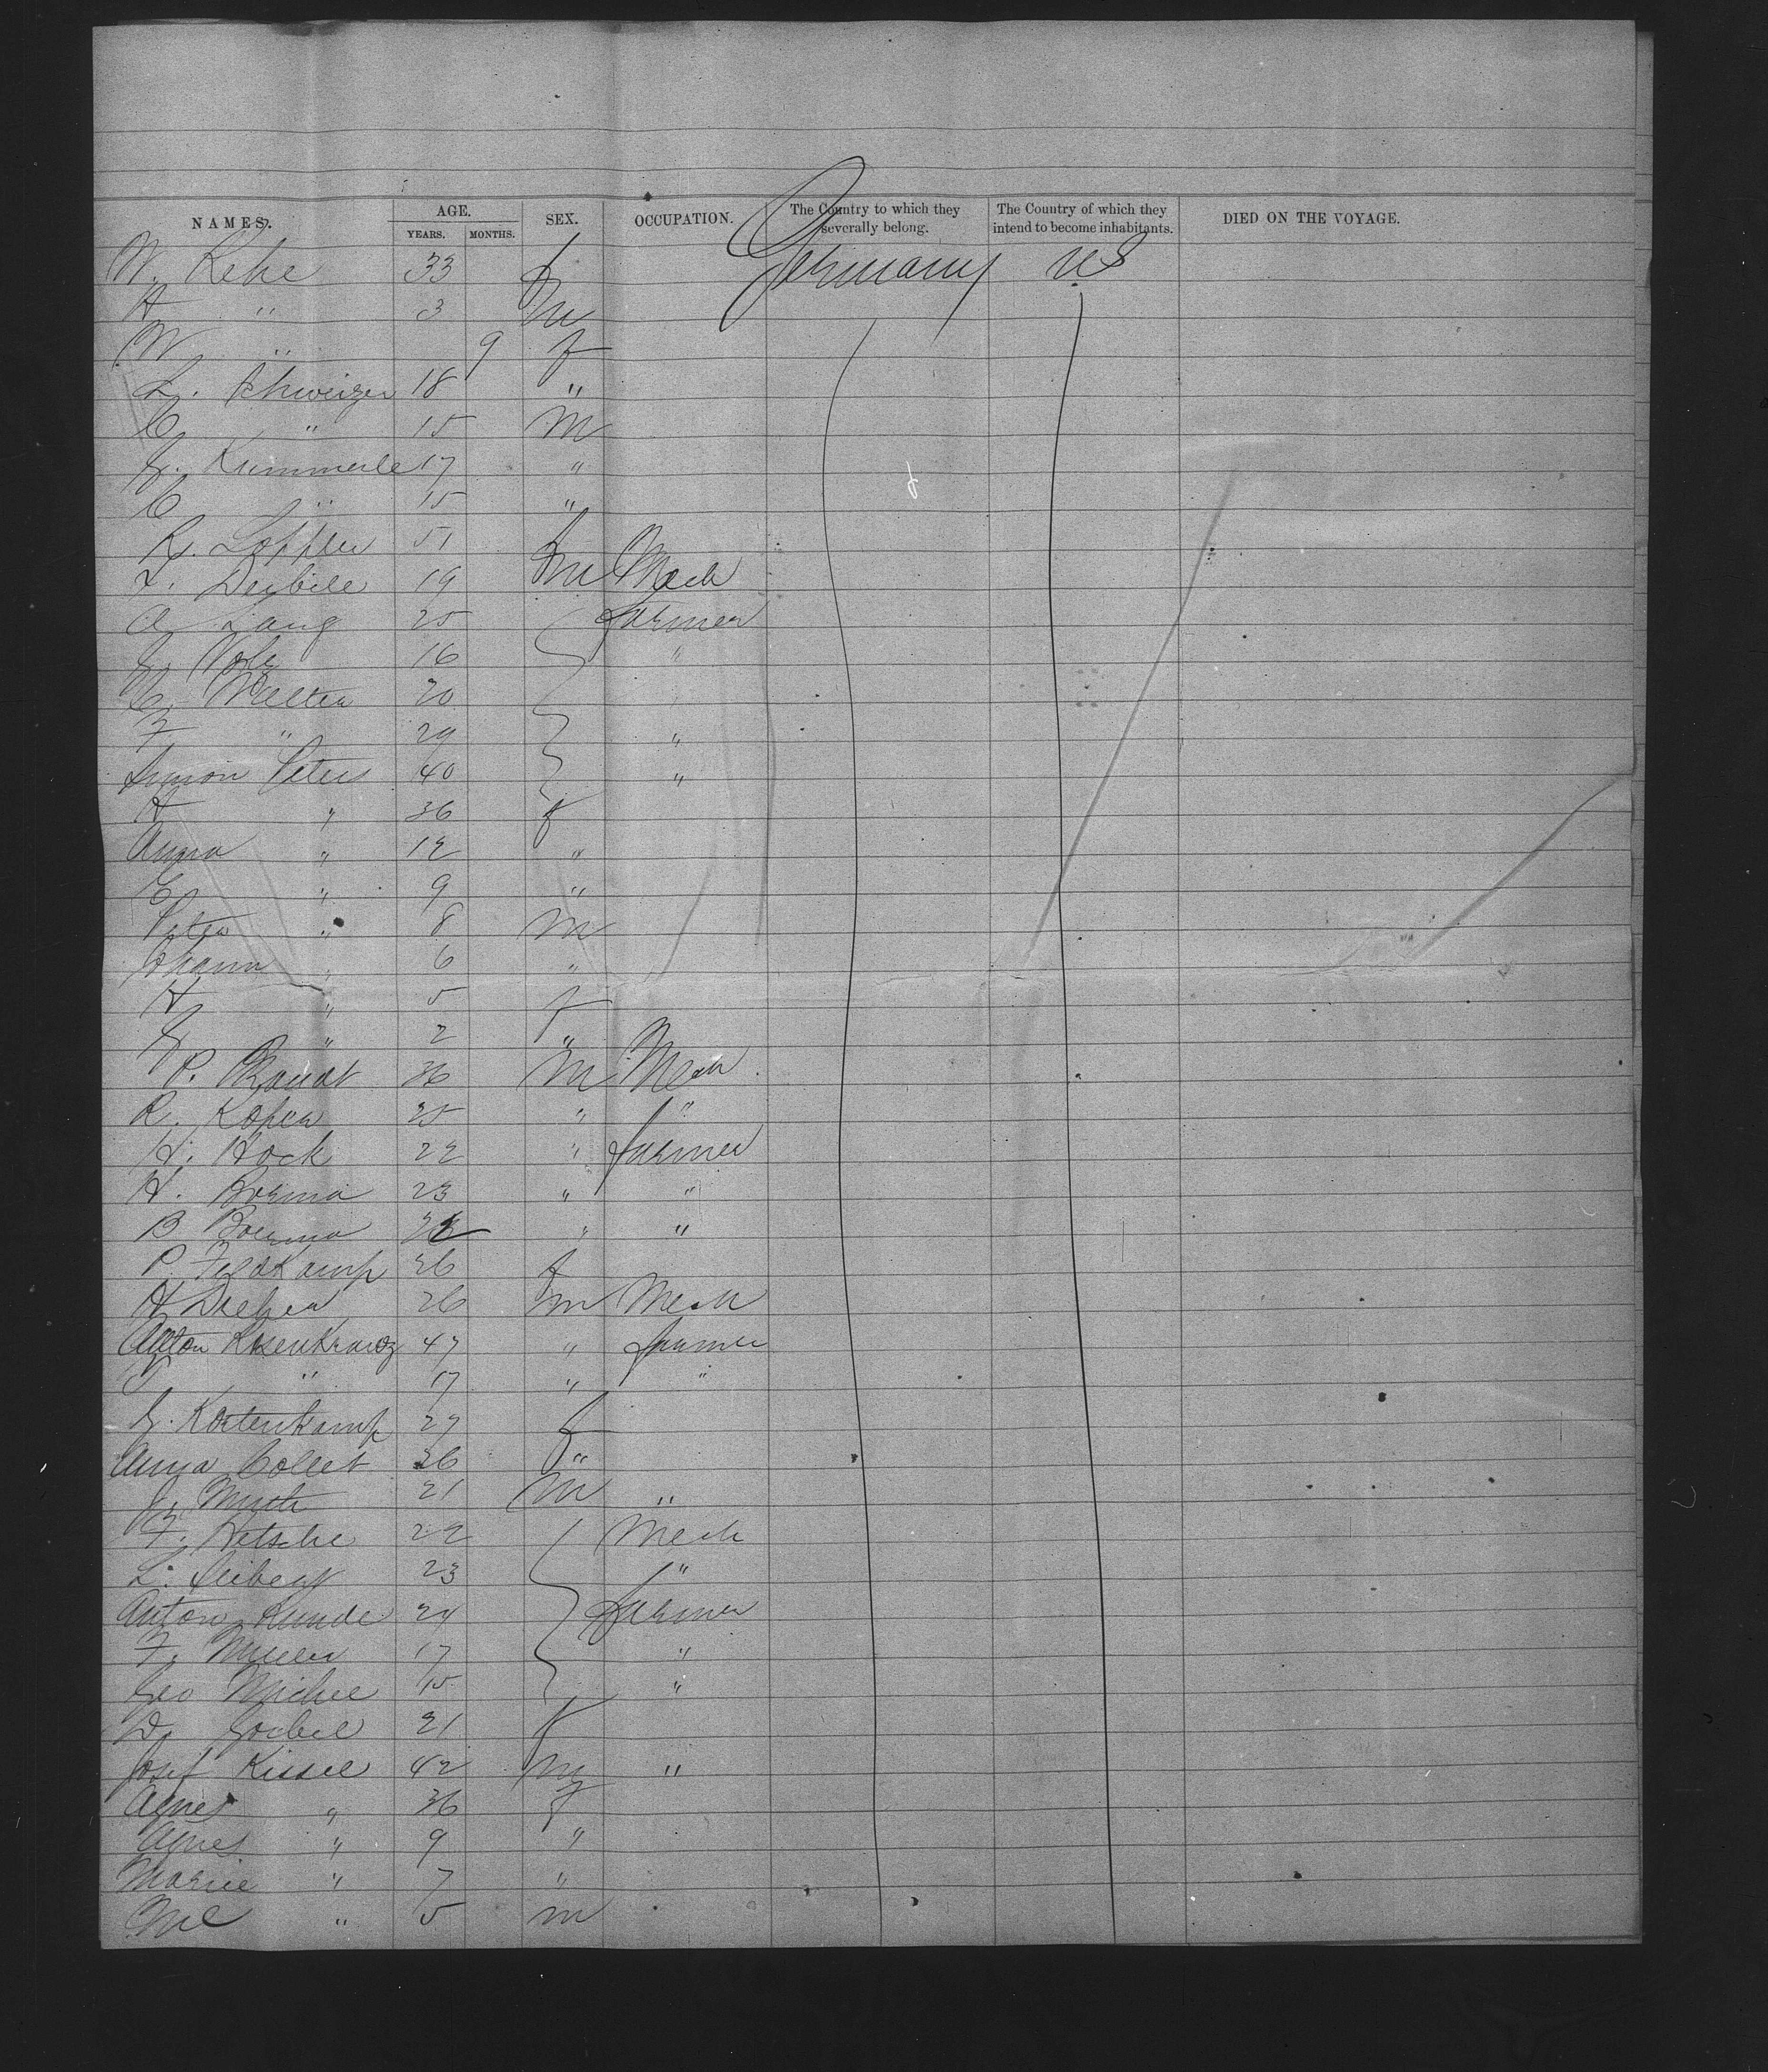 NAMES. AGE. SEX. OCCUPATION. The Country to which they severally belong. The Country of which they intend to become inhabitants. DIED ON THE VOYAGE.
YEARS. MONTHS.
W. Kehe 33 f Germany US
H " 3 m
W " 9 f
L. Schweizer 18 "
C " 15 m
G. Kummerle 17 "
C " 15 "
R. Loffler 51 f
L. Deibile 19 m Mech
A Lang 25 Farmer
G. Volz 16 "
C. Walter 20 "
F. " 29 "
Simon Peters 40 "
H " 36 f
Anna " 12 "
C " 9 "
Peter " 8 m
Johann " 6 "
H " 5 f
G " 2 "
P. Brandt 36 m Mech
R. Koper 25 " "
H. Hock 22 " Farmer
H. Boerma 23 " "
B Boerma " "
P. Feldkamp 26 f
H Dreher 26 m Mech
Anton Rosenkranz 47 " Farmer
" 17 " "
G. Kortenkamp 27 f
Anna Collet 26 "
J. Muth 21 m "
F. Ketsche 22 Mech
L. Seibert 23 "
Anton Kunde 24 Farmer
F. Muller 17 "
Geo Michel 15 "
D. Goebel 21 f
Josef Kissel 42 m "
Agnes " 36 f
Agnes " 9 "
Marie " 7 "
" 5 m